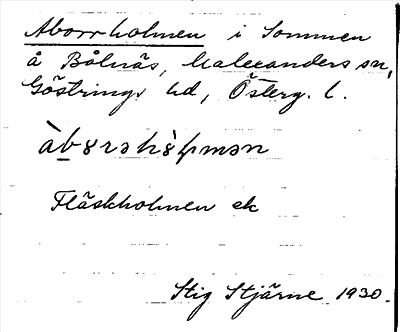 Aborrholmen i Sommen
å Bålnäs, Malexanders sn,
Göstrings hd, Österg. l.
Fläskholmen ek
Stig Stjärne 1930.